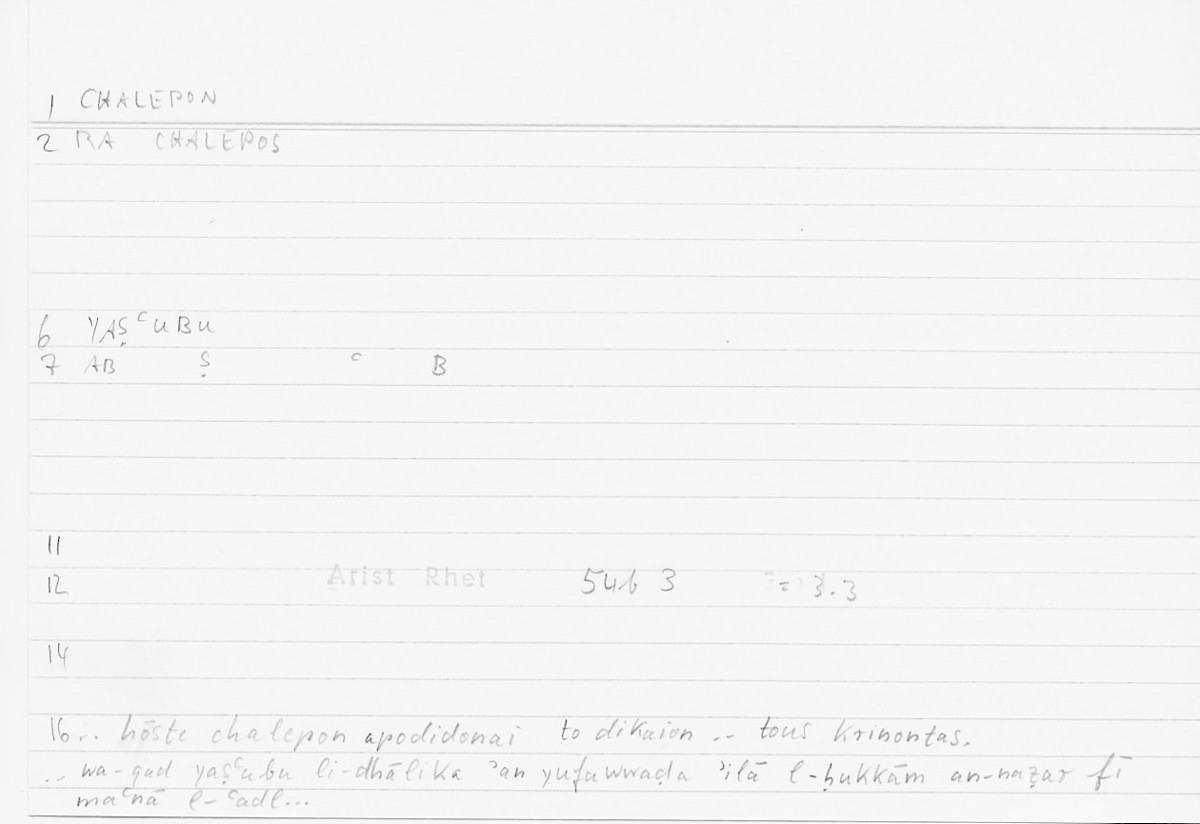 1 CHALEPON
2 RA CHALEPOS
6 YAṢʿUBU
7 AB Ṣ ʿ B
11
12 Arist Rhet 54b 3 = 3.3
14
16.. hōste chalepon apodidonai to dikaion .. tous krinontas.
.. wa-qad yaṣʿubu li-dhālika ʾan yufawwaḍa ʾilā l-ḥukkām an-naẓar fī
maʿnā l-ʿadl...